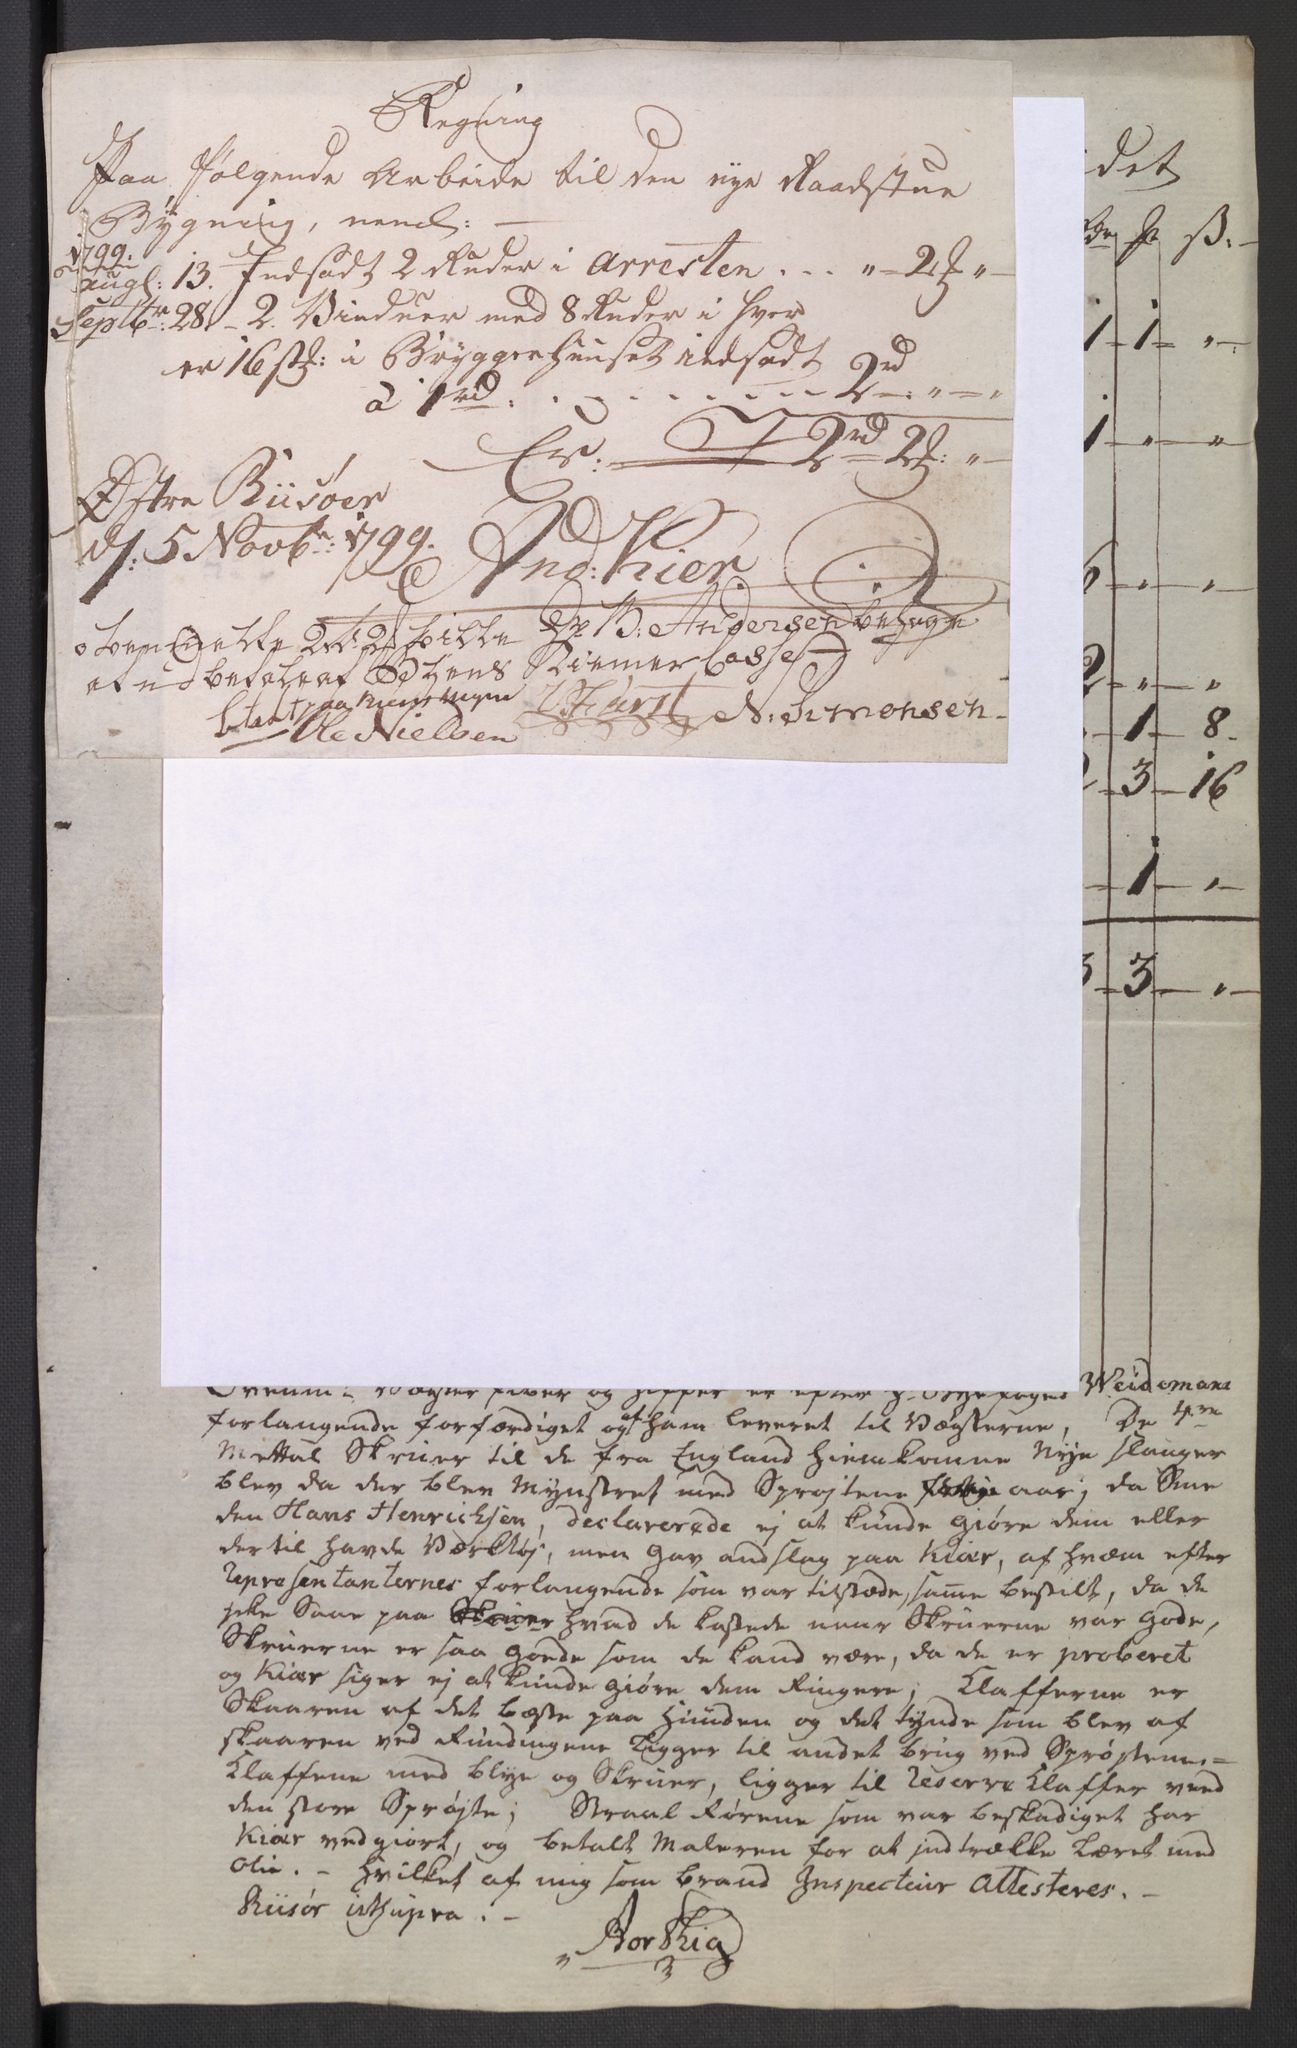 Regning
Paa følgende Arbeide til den nye Raadstue
Bÿgning, neml: —
1799.
Augt: 13. Indsadt 2 Ruder i Arresten . . . " — 2 " —
Septbr: 28. — 2. Vinduer med 8 Ruder i hver
er 16 st: i Brÿggerhuuset indsadt
à 1 rd . . . . . . . . . 2 rd — " — "
Er: 2 rd 2 : " —
Østre Riisøer
d: 5 Novbr: 1799.
And: Kiær
B: Andersen behage
at udbetale af Byens Kiemner Casse
betalt
Ole Nielsen
N: Simonsen
det
ß. —
1 — 1 — "
1 — " — "
" — "
2 — " — "
1 — 8 —
3 — 16
— 1 — "
3 — 3 — "
og er efter Weidemans
forlangende forfærdiget og af ham leveret til Vægterne, De
Mettal Skruer til de fra England hiemkomne Nÿe slanger
blev da der blev Mÿnstret med Sprøjtene aar; da Sme
den Hans Henrichsen, declarerede ej at kunde giøre dem eller
dertil havde Værktøj, men gav andslag paa Kiær, af hvem efter
Representanternes forlangende som var tilstæde, same bestilt, da de
jcke Saae paa hvad de kostede naar Skruerne var gode,
Skruerne er saa goede som de kand være, da de er proberet
og Kiær siger ej at kunde giøre dem Ringere; Klafferne er
Skaaren af det beste paa Huuden og det tÿnde som blev af
skaaren ved Rundingene Ligger til andet brug ved Sprøjtene, =
Klaffene med blÿe og Skruer, ligger til Reserve Klaffer ved
den store Sprøjte; Straal Rørene som var beskadiget har
Kiær vedgiort, og betalt Maleren for at jndtrække Læret med
Olie. — hvilket af mig som brand Jnspecteur Attesteres. —
Riisør ut supra. —